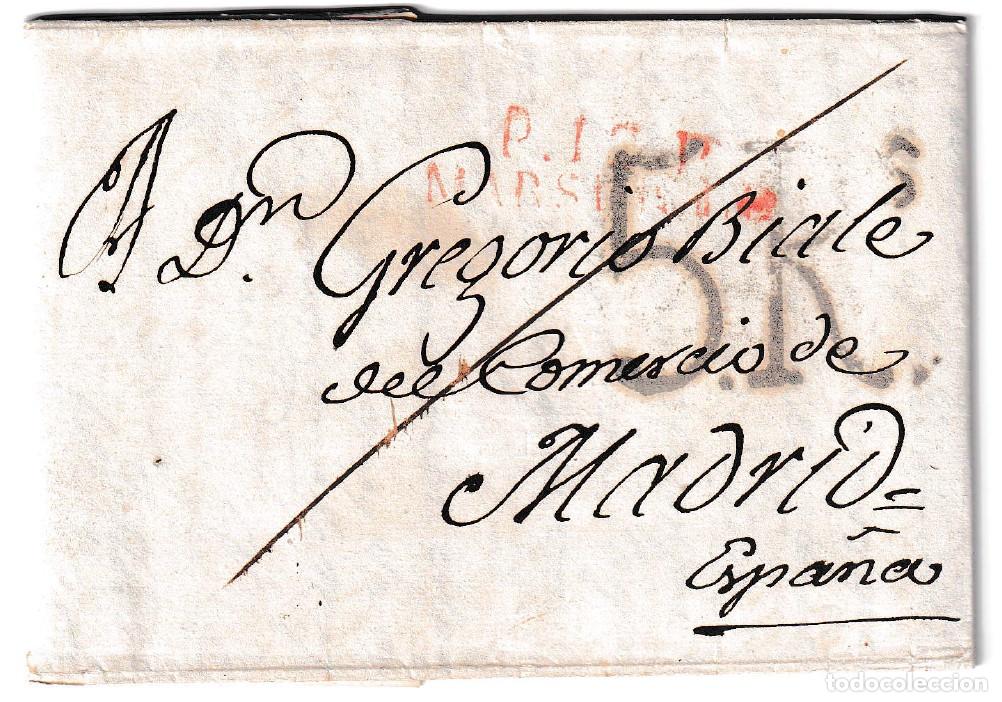 P. 12 P.
MARSEILLE
5.Rˢ.
A Dⁿ. Gregorio Biale
del Comercio de
Madrid =
España
todocoleccion